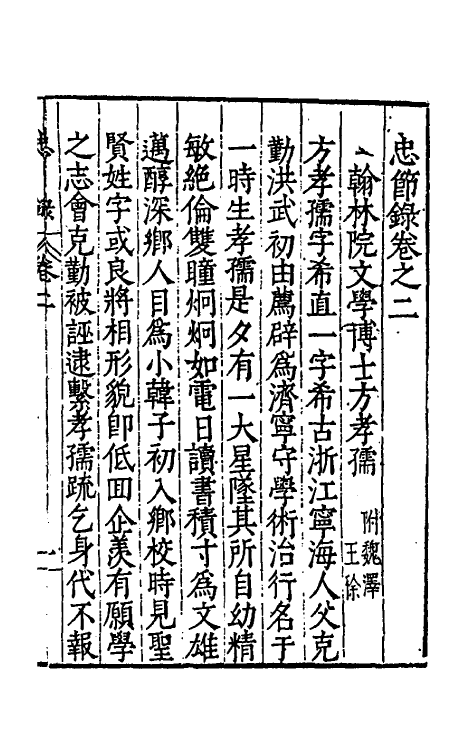 忠節錄卷之二
翰林院文學博士方孝孺 附魏澤 王稌
方孝孺字希直一字希古浙江寧海人父克
勤洪武初由薦辟為濟寧守學術治行名于
一時生孝孺是夕有一大星墜其所自幼精
敏絕倫雙瞳炯炯如電日讀書積寸為文雄
邁醇深鄉人目為小韓子初入鄉校時見聖
賢姓字或良將相形貌即低回企羨有願學
之志會克勤被誣逮繫孝孺疏乞身代不報
忠 錄 卷二 一